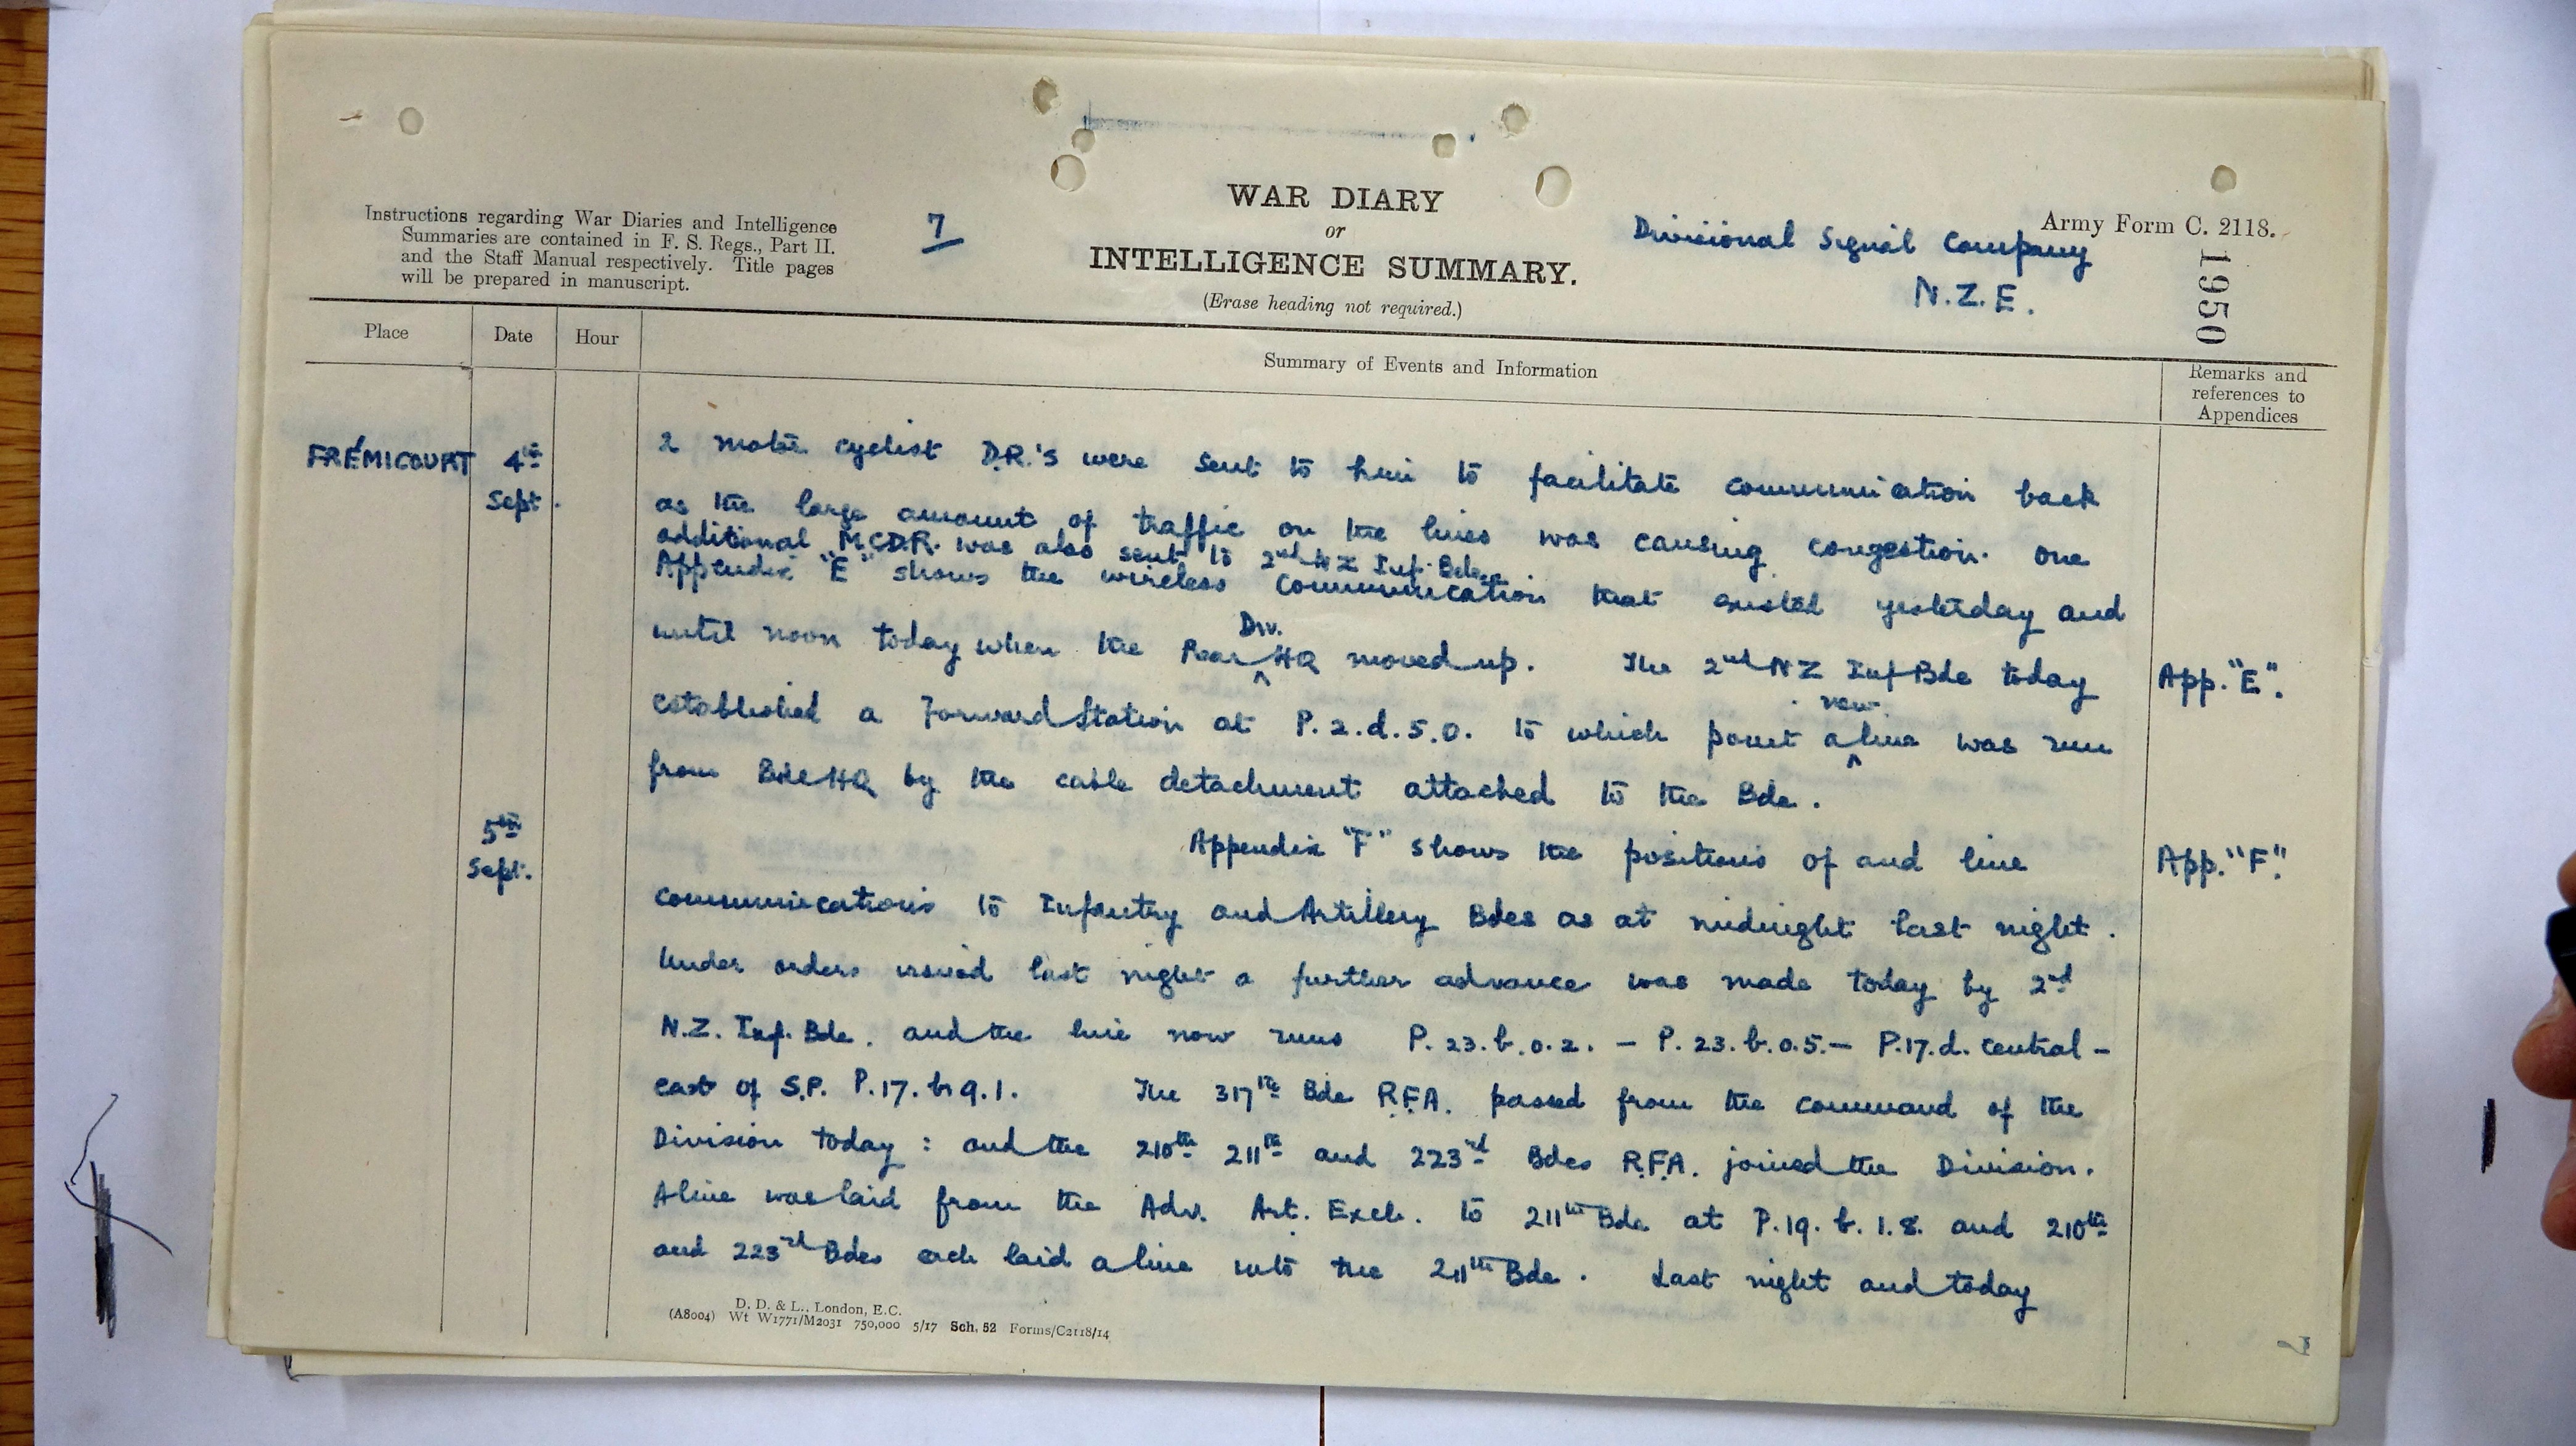 Instructions regarding War Diaries and Intelligence
Summaries are contained in F. S. Regs., Part II.
and the Staff Manual respectively. Title pages
will be prepared in manuscript.
7
WAR DIARY
or
INTELLIGENCE SUMMARY.
(Erase heading not required.)
Army Form C. 2118.
Divisional Signal Company
N.Z.E.
1950
Place
Date
Hour
Summary of Events and Information
Remarks and
references to
Appendices
FRÉMICOURT
4th
Sept.
2 motor cyclist D.R.'s were sent to him to facilitate communication back
as the large amount of traffic on the lines was causing congestion. One
additional M.C.D.R. was also sent to 2nd NZ Inf. Bde.
Appendix "E" shows the wireless communication that existed yesterday and
until noon today when the Rear Div. HQ moved up. The 2nd NZ Inf Bde today
App. "E".
established a Forward Station at P.2.d.5.0. to which point a new line was run
from Bde HQ by the cable detachment attached to the Bde.
5th
Sept.
Appendix "F" shows the positions of and line
App. "F".
communications to Infantry and Artillery Bdes as at midnight last night.
Under orders issued last night a further advance was made today by 2nd
N.Z. Inf. Bde. and the line now runs P.23.b.0.2. — P.23.b.0.5.— P.17.d. central —
east of S.P. P.17.b.9.1. The 317th Bde R.F.A. passed from the command of the
Division today : and the 210th 211th and 223rd Bdes R.F.A. joined the Division.
A line was laid from the Adv. Art. Exch. to 211th Bde at P.19.b.1.8. and 210th
and 223rd Bdes each laid a line into the 211th Bde. Last night and today
D. D. & L., London, E.C.
(A8004) Wt W1771/M2031 750,000 5/17 Sch. 52 Forms/C2118/14
7